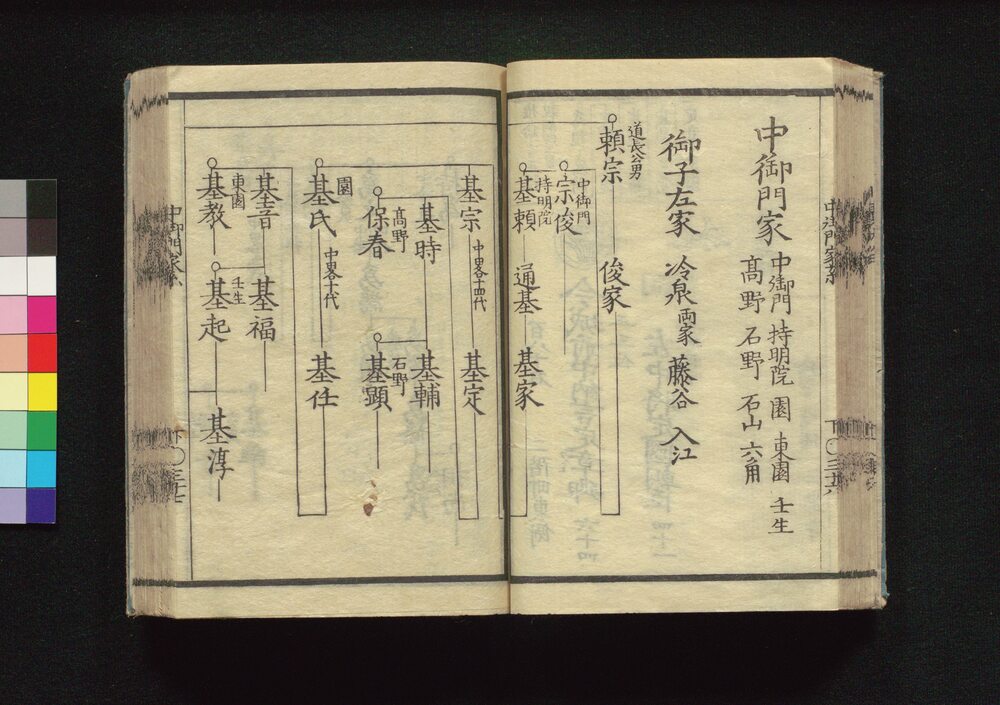 中御門家
中御門 持明院 園 東園 壬生
髙野 石野 石山 六角
御子左家 冷泉両家 藤谷 入江
道長公男
頼宗 俊家
中御門
宗俊
持明院
基頼 通基 基家
基宗 中畧十四代 基定
基時 基輔
髙野
保春
石野
基顕
園
基氏 中畧十代 基任
基音 基福
東園
基教
壬生
基起 基淳